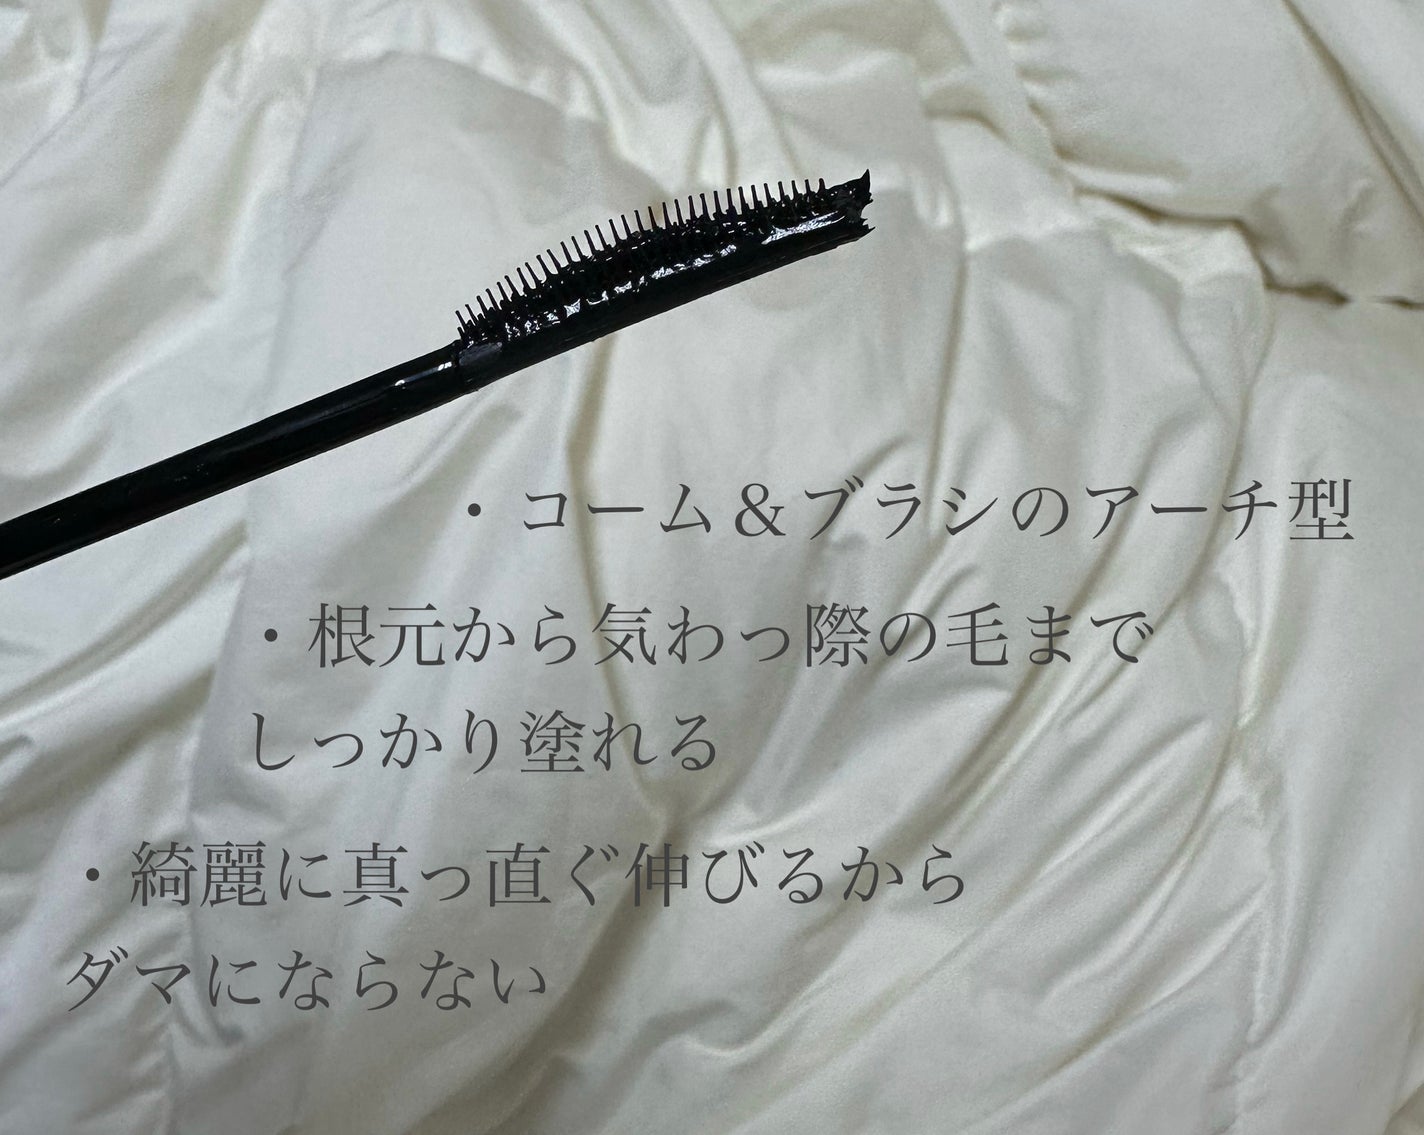 ・コーム＆ブラシのアーチ型
・根元から気わっ際の毛まで
しっかり塗れる
・綺麗に真っ直ぐ伸びるから
ダマにならない